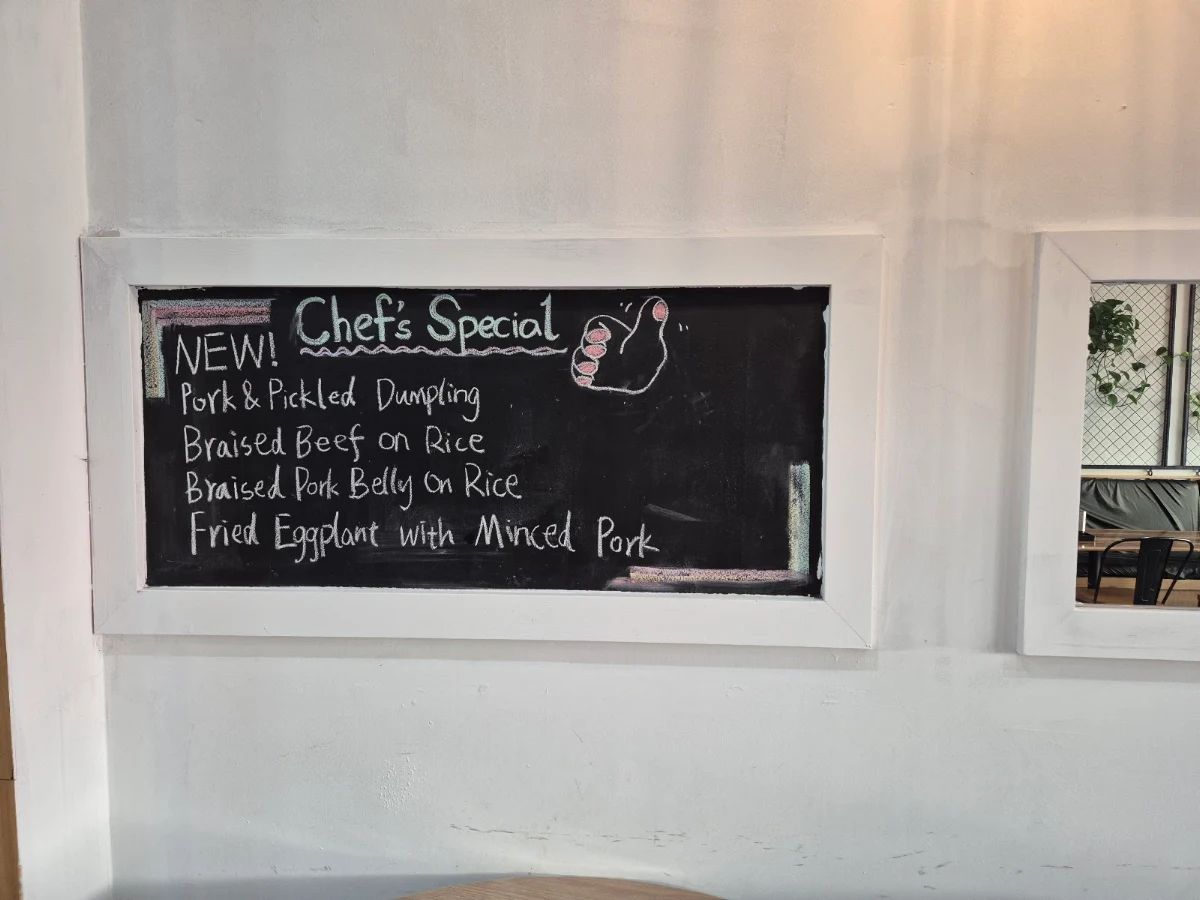 Chef's Special
NEW!
Pork & Pickled Dumpling
Braised Beef on Rice
Braised Pork Belly On Rice
Fried Eggplant with Minced Pork